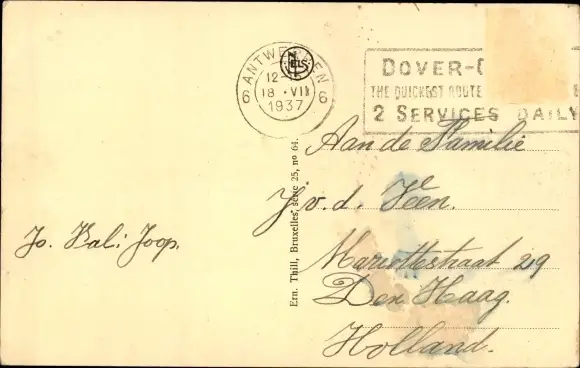 ANTWERPEN
6 6
12-
18 · VII
1937
NELS
DOVER-
THE QUICKEST ROUTE
2 SERVICES DAILY
Ern. Thill, Bruxelles, série 25, no 64.
Aan de Familie
J v. d. Veen.
Mariottestraat 29
Den Haag.
Holland.
Jo. Bal: Joop.